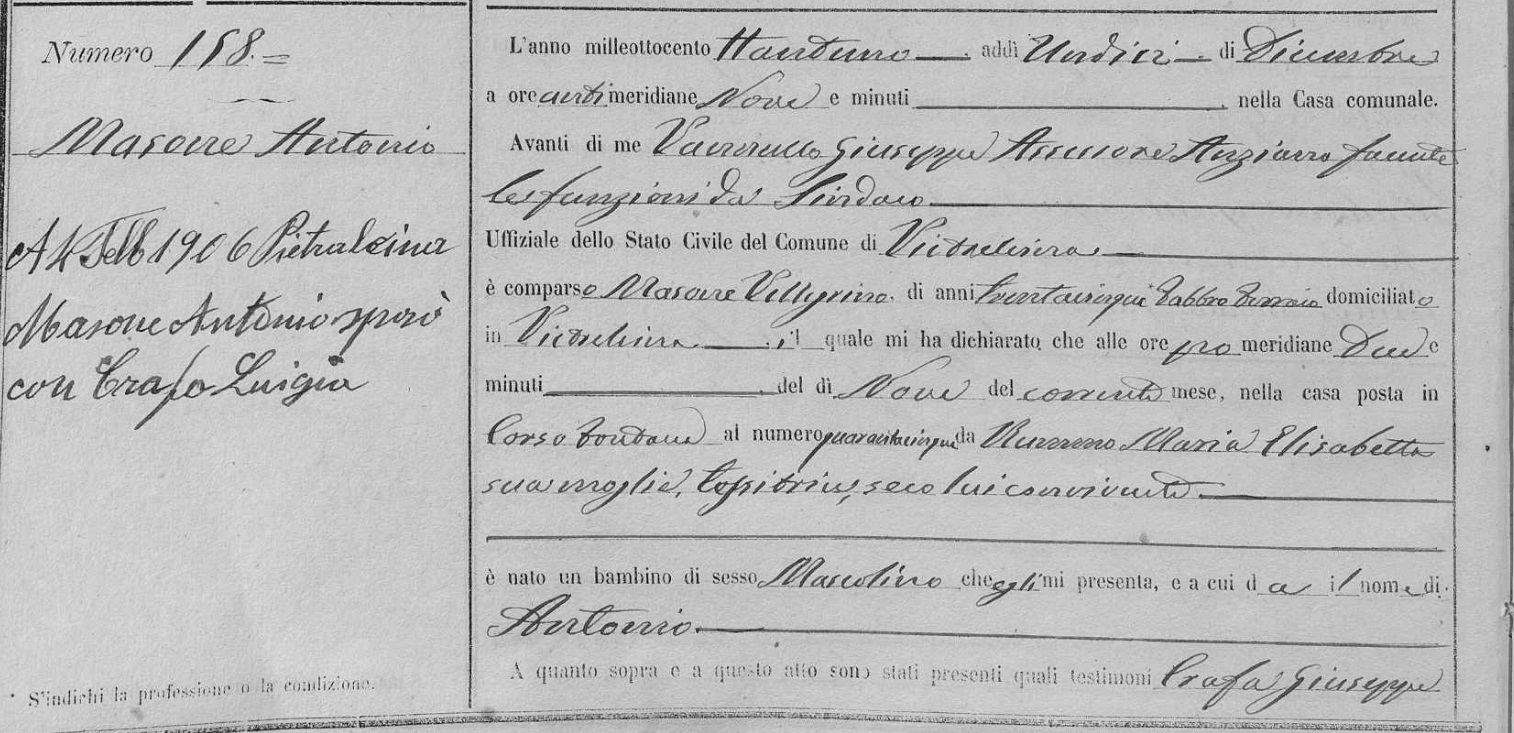 Numero 158.=
Masone Antonio
A 4 Febb 1906 Pietralcina
Masone Antonio sposò
con Crafa Luigia
* S'indichi la professione o la condizione.
L'anno milleottocento ttantuno addì Undici di Dicembre
a ore anti meridiane Nove e minuti , nella Casa comunale.
Avanti di me Giuseppe Assessore Anziano facente
le funzioni da Sindaco
Uffiziale dello Stato Civile del Comune di Pietrelcina
è comparso Masone Pellegrino, di anni trentacinque Fabbro Ferraio domiciliato
in Pietrelcina, il quale mi ha dichiarato che alle ore po meridiane Due e
minuti del dì Nove del corrente mese, nella casa posta in
Corso Fontane al numero quarantacinque da Maria Elisabetta
sua moglie, seco lui convivente
è nato un bambino di sesso Mascolino che egli mi presenta, e a cui da il nome di
Antonio
A quanto sopra e a questo atto sono stati presenti quali testimoni Crafa Giuseppe